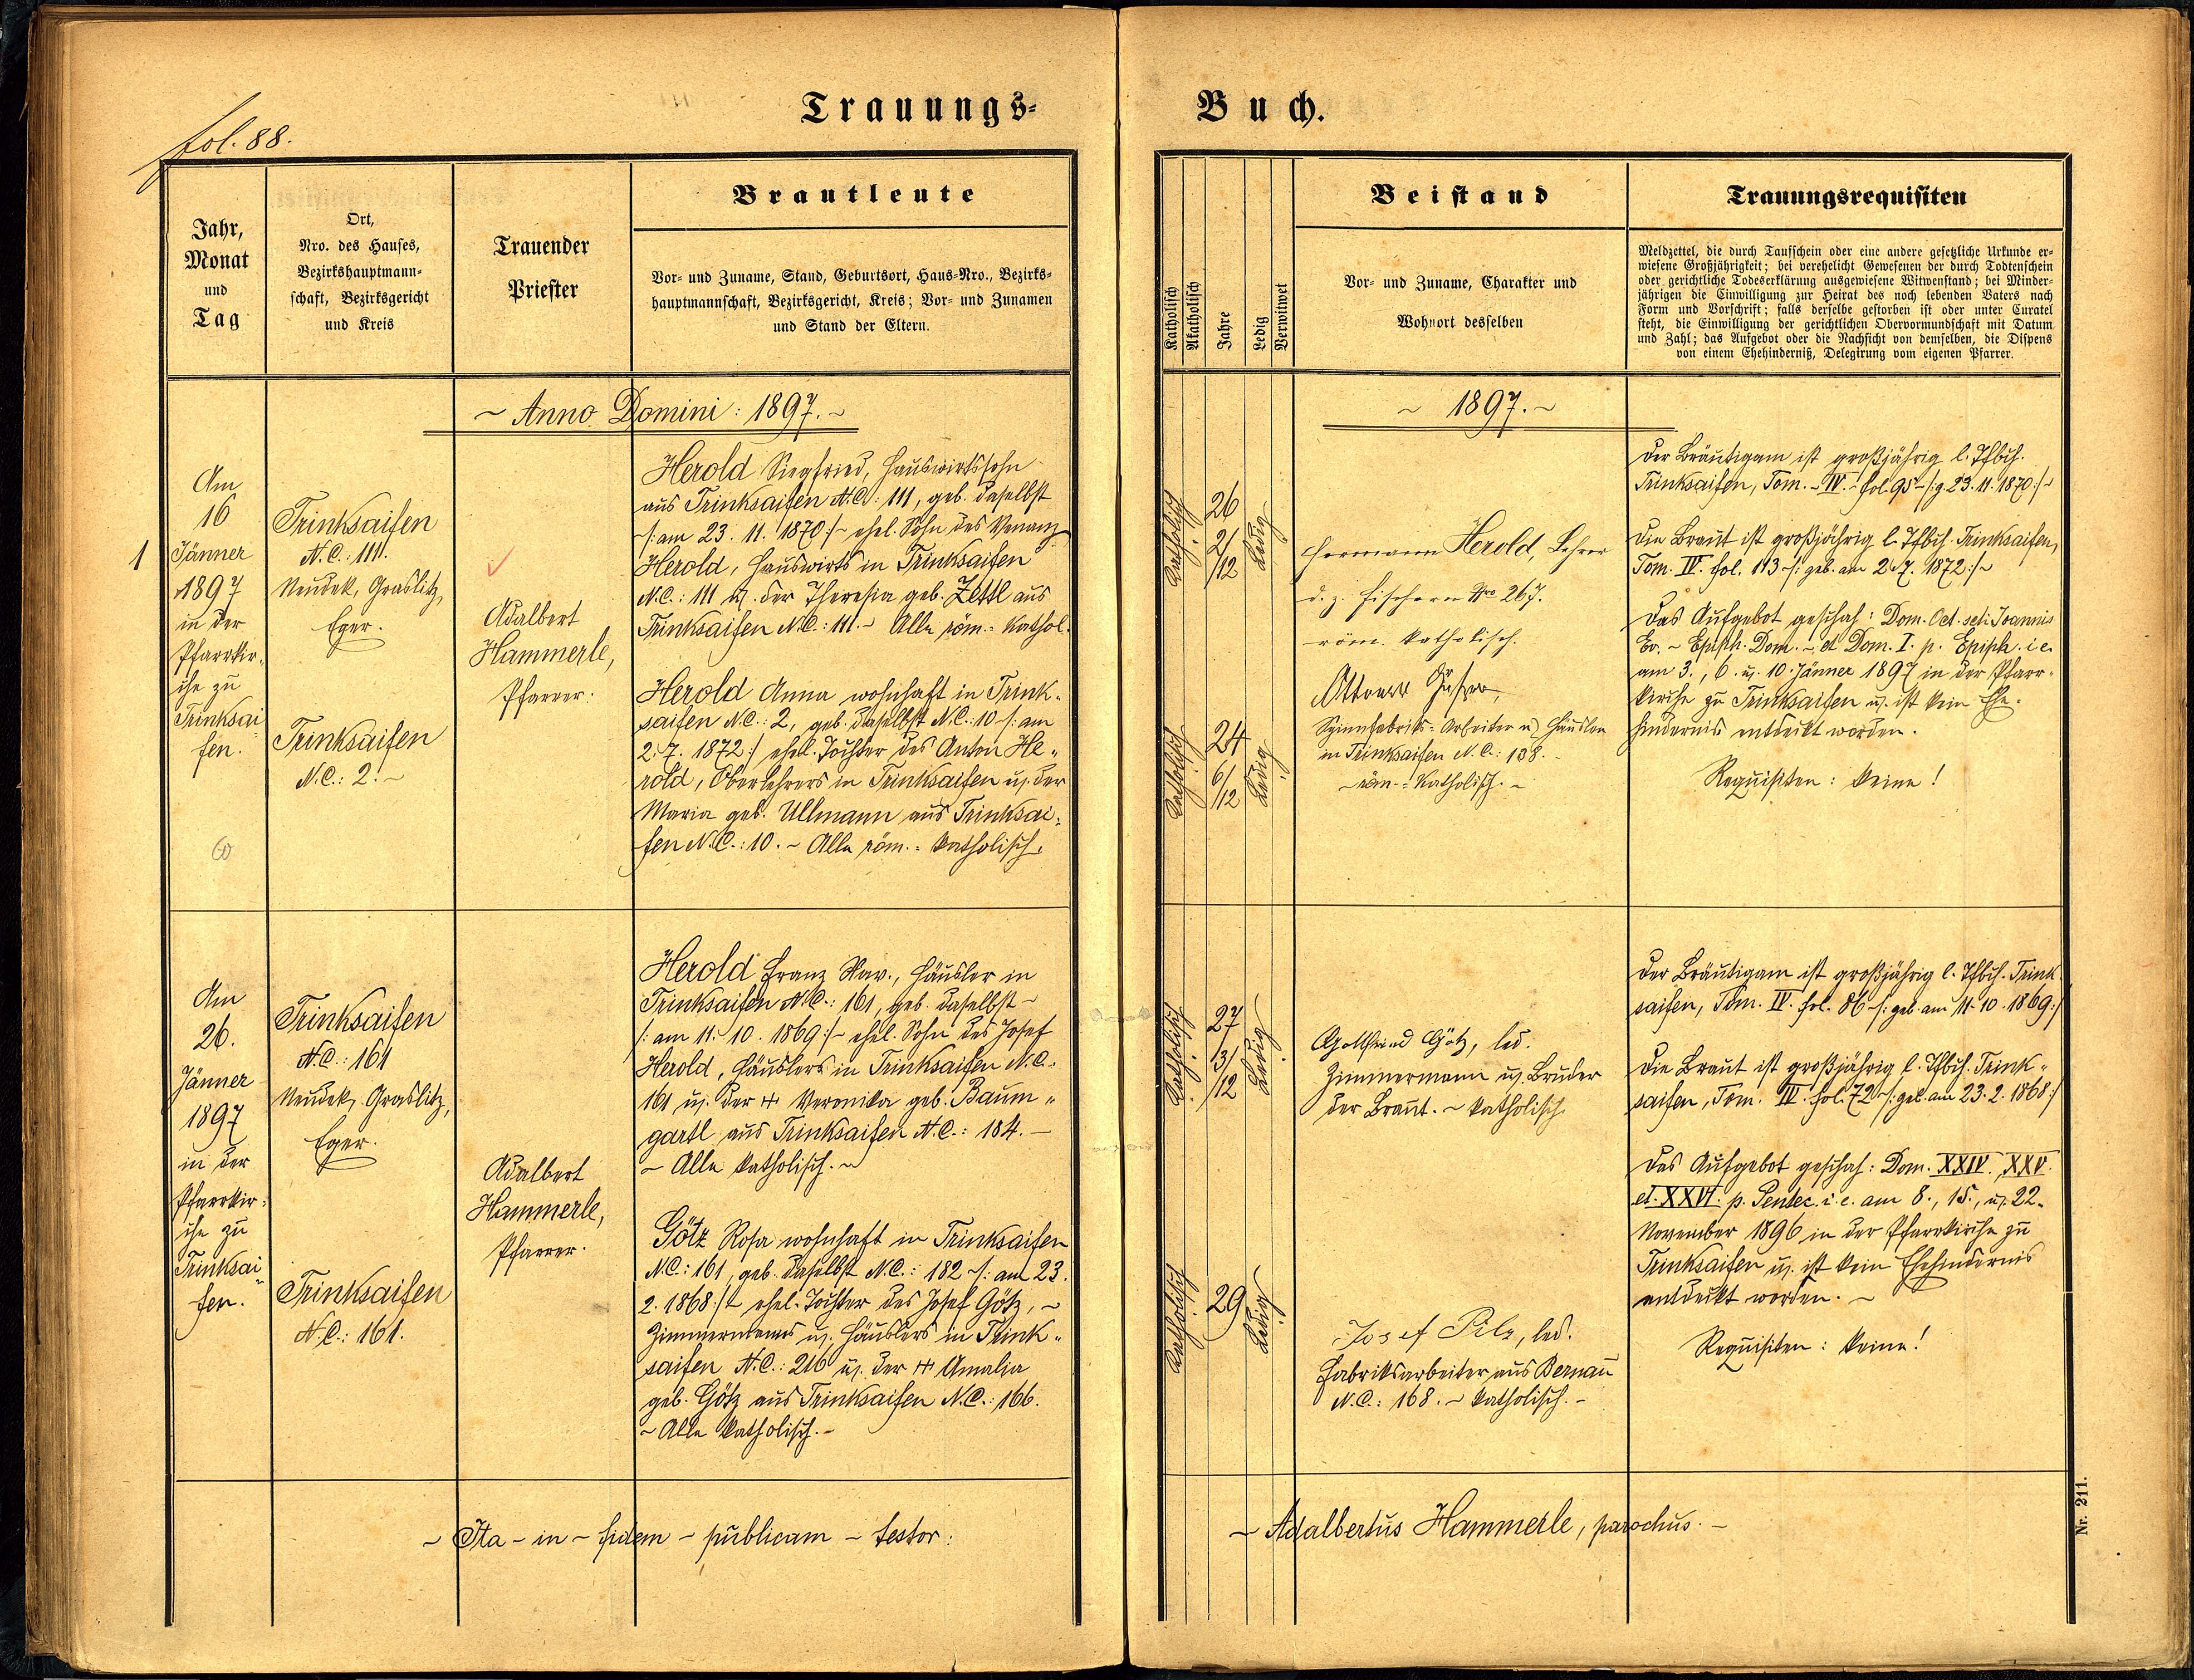 fol. 88.
Trauungs-
Jahr,
Monat
und
Tag
Ort,
Nro. des Hauses,
Bezirkshauptmann-
schaft, Bezirksgericht
und Kreis
Trauender
Priester
Brautleute
Vor- und Zuname, Stand, Geburtsort, Haus-Nro., Bezirks-
hauptmannschaft, Bezirksgericht, Kreis; Vor- und Zunamen
und Stand der Eltern.
~ Anno Domini: 1897. ~
1
Am
16
Jänner
1897
in der
Pfarrkir-
che zu
Trinksai-
fen.
Trinksaifen
N.C.: 111.
Neudek, Graslitz,
Eger.
Trinksaifen
N.C.: 2. ~
Adalbert
Hammerle,
Pfarrer.
Herold Siegfried, Hauswirtssohn
aus Trinksaifen N.C.: 111, geb. daselbst
/: am 23. 11. 1870 :/ ~ ehel. Sohn des Venanz
Herold, Hauswirts in Trinksaifen
N.C.: 111 u. der Theresia geb. Zettl aus
Trinksaifen N.C.: 111. ~ Alle röm.= kathol.
Herold Anna wohnhaft in Trink-
saifen N.C.: 2, geb. daselbst N.C.: 10 /: am
2. 7. 1872 :/ ehel. Tochter des Anton He-
rold, Oberlehrers in Trinksaifen u. der
Maria geb. Ullmann aus Trinksai-
fen N.C.: 10. ~ Alle röm.= katholisch.
Am
26.
Jänner
1897
in der
Pfarrkir-
che zu
Trinksai-
fen.
Trinksaifen
N.C.: 161
Neudek, Graslitz,
Eger.
Trinksaifen
N.C.: 161.
Adalbert
Hammerle,
Pfarrer.
Herold Franz Xav., Häusler in
Trinksaifen N.C.: 161, geb. daselbst ~
/: am 11. 10. 1869 :/ ~ ehel. Sohn des Josef
Herold, Häuslers in Trinksaifen N.C.
161 u. der + Veronika geb. Baum-
gartl aus Trinksaifen N.C.: 184. ~
~ Alle katholisch. ~
Götz Rosa wohnhaft in Trinksaifen
N.C.: 161, geb. daselbst N.C.: 182 ~ /: am 23.
2. 1868 :/ ~ ehel. Tochter des Josef Götz, ~
Zimmermanns u. Häuslers in Trink-
saifen N.C.: 216 u. der + Amalia
geb. Götz aus Trinksaifen N.C.: 166.
~ Alle katholisch. ~
~ Ita - in - fidem - publicam - testor:
Buch.
Katholisch
Akatholisch
Jahre
Ledig
Verwitwet
Beistand
Vor- und Zuname, Charakter und
Wohnort desselben
Trauungsrequisiten
Meldzettel, die durch Taufschein oder eine andere gesetzliche Urkunde er-
wiesene Großjährigkeit; bei verehelicht Gewesenen der durch Todtenschein
oder gerichtliche Todeserklärung ausgewiesene Witwenstand; bei Minder-
jährigen die Einwilligung zur Heirat des noch lebenden Vaters nach
Form und Vorschrift; falls derselbe gestorben ist oder unter Curatel
steht, die Einwilligung der gerichtlichen Obervormundschaft mit Datum
und Zahl; das Aufgebot oder die Nachsicht von demselben, die Dispens
von einem Ehehinderniß, Delegirung vom eigenen Pfarrer.
~ 1897. ~
Katholisch
26
2/12
Ledig
Katholisch
24
6/12
Ledig
Hermann Herold, Lehrer
d. z. Fischern Nro 267.
röm. katholisch.
Spinnfabriks-Arbeiter u. Häusler
in Trinksaifen N.C.: 138.
~ röm.= katholisch. ~
Der Bräutigam ist großjährig l. Tfbch.
Trinksaifen, Tom. ~ IV. ~ fol. 95 ~ /: g. 23. 11. 1870 :/ ~
Die Braut ist großjährig l. Tfbch. Trinksaifen,
Tom. IV. fol. 113 ~ /: geb. am 2. 7. 1872 :/ ~
Das Aufgebot geschah: Dom. Oct. scti Joannis
Ev. ~ Epiph. Dom. ~ et Dom. I. p. Epiph. i. e.
am 3., 6. u. 10. Jänner 1897 in der Pfarr-
kirche zu Trinksaifen u. ist kein Ehe-
hindernis entdeckt worden.
Requisiten: keine!
Katholisch
27
3/12
Ledig
Katholisch
29
Ledig
Gottfried Götz, led.
Zimmermann u. Bruder
der Braut. ~ katholisch
Josef Pilz, led.
Fabriksarbeiter aus Bernau
N.C.: 168. ~ katholisch. ~
Der Bräutigam ist großjährig l. Tfbch. Trink-
saifen, Tom. IV. fol. 86 ~ /: geb. am 11. 10. 1869 :/
Die Braut ist großjährig l. Tfbch. Trink-
saifen, Tom. IV. fol. 72 ~ /: geb. am 23. 2. 1868 :/
Das Aufgebot geschah: Dom. XXIV. XXV.
et XXVI. p. Pentec. i. e. am 8., 15., u. 22.
November 1896 in der Pfarrkirche zu
Trinksaifen u. ist kein Ehehindernis
entdeckt worden. ~
Requisiten: keine!
~ Adalbertus Hammerle, parochus. ~
Nr. 211.